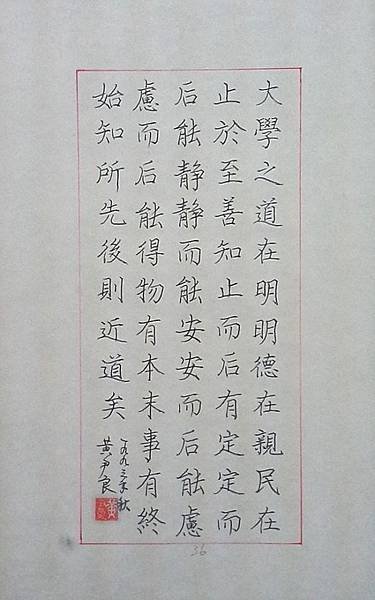 大學之道在明明德在親民在
止於至善知止而后有定定而
后能静静而能安安而后能慮
慮而后能得物有本末事有終
始知所先後則近道矣
一九九三年秋
黄尹良
36